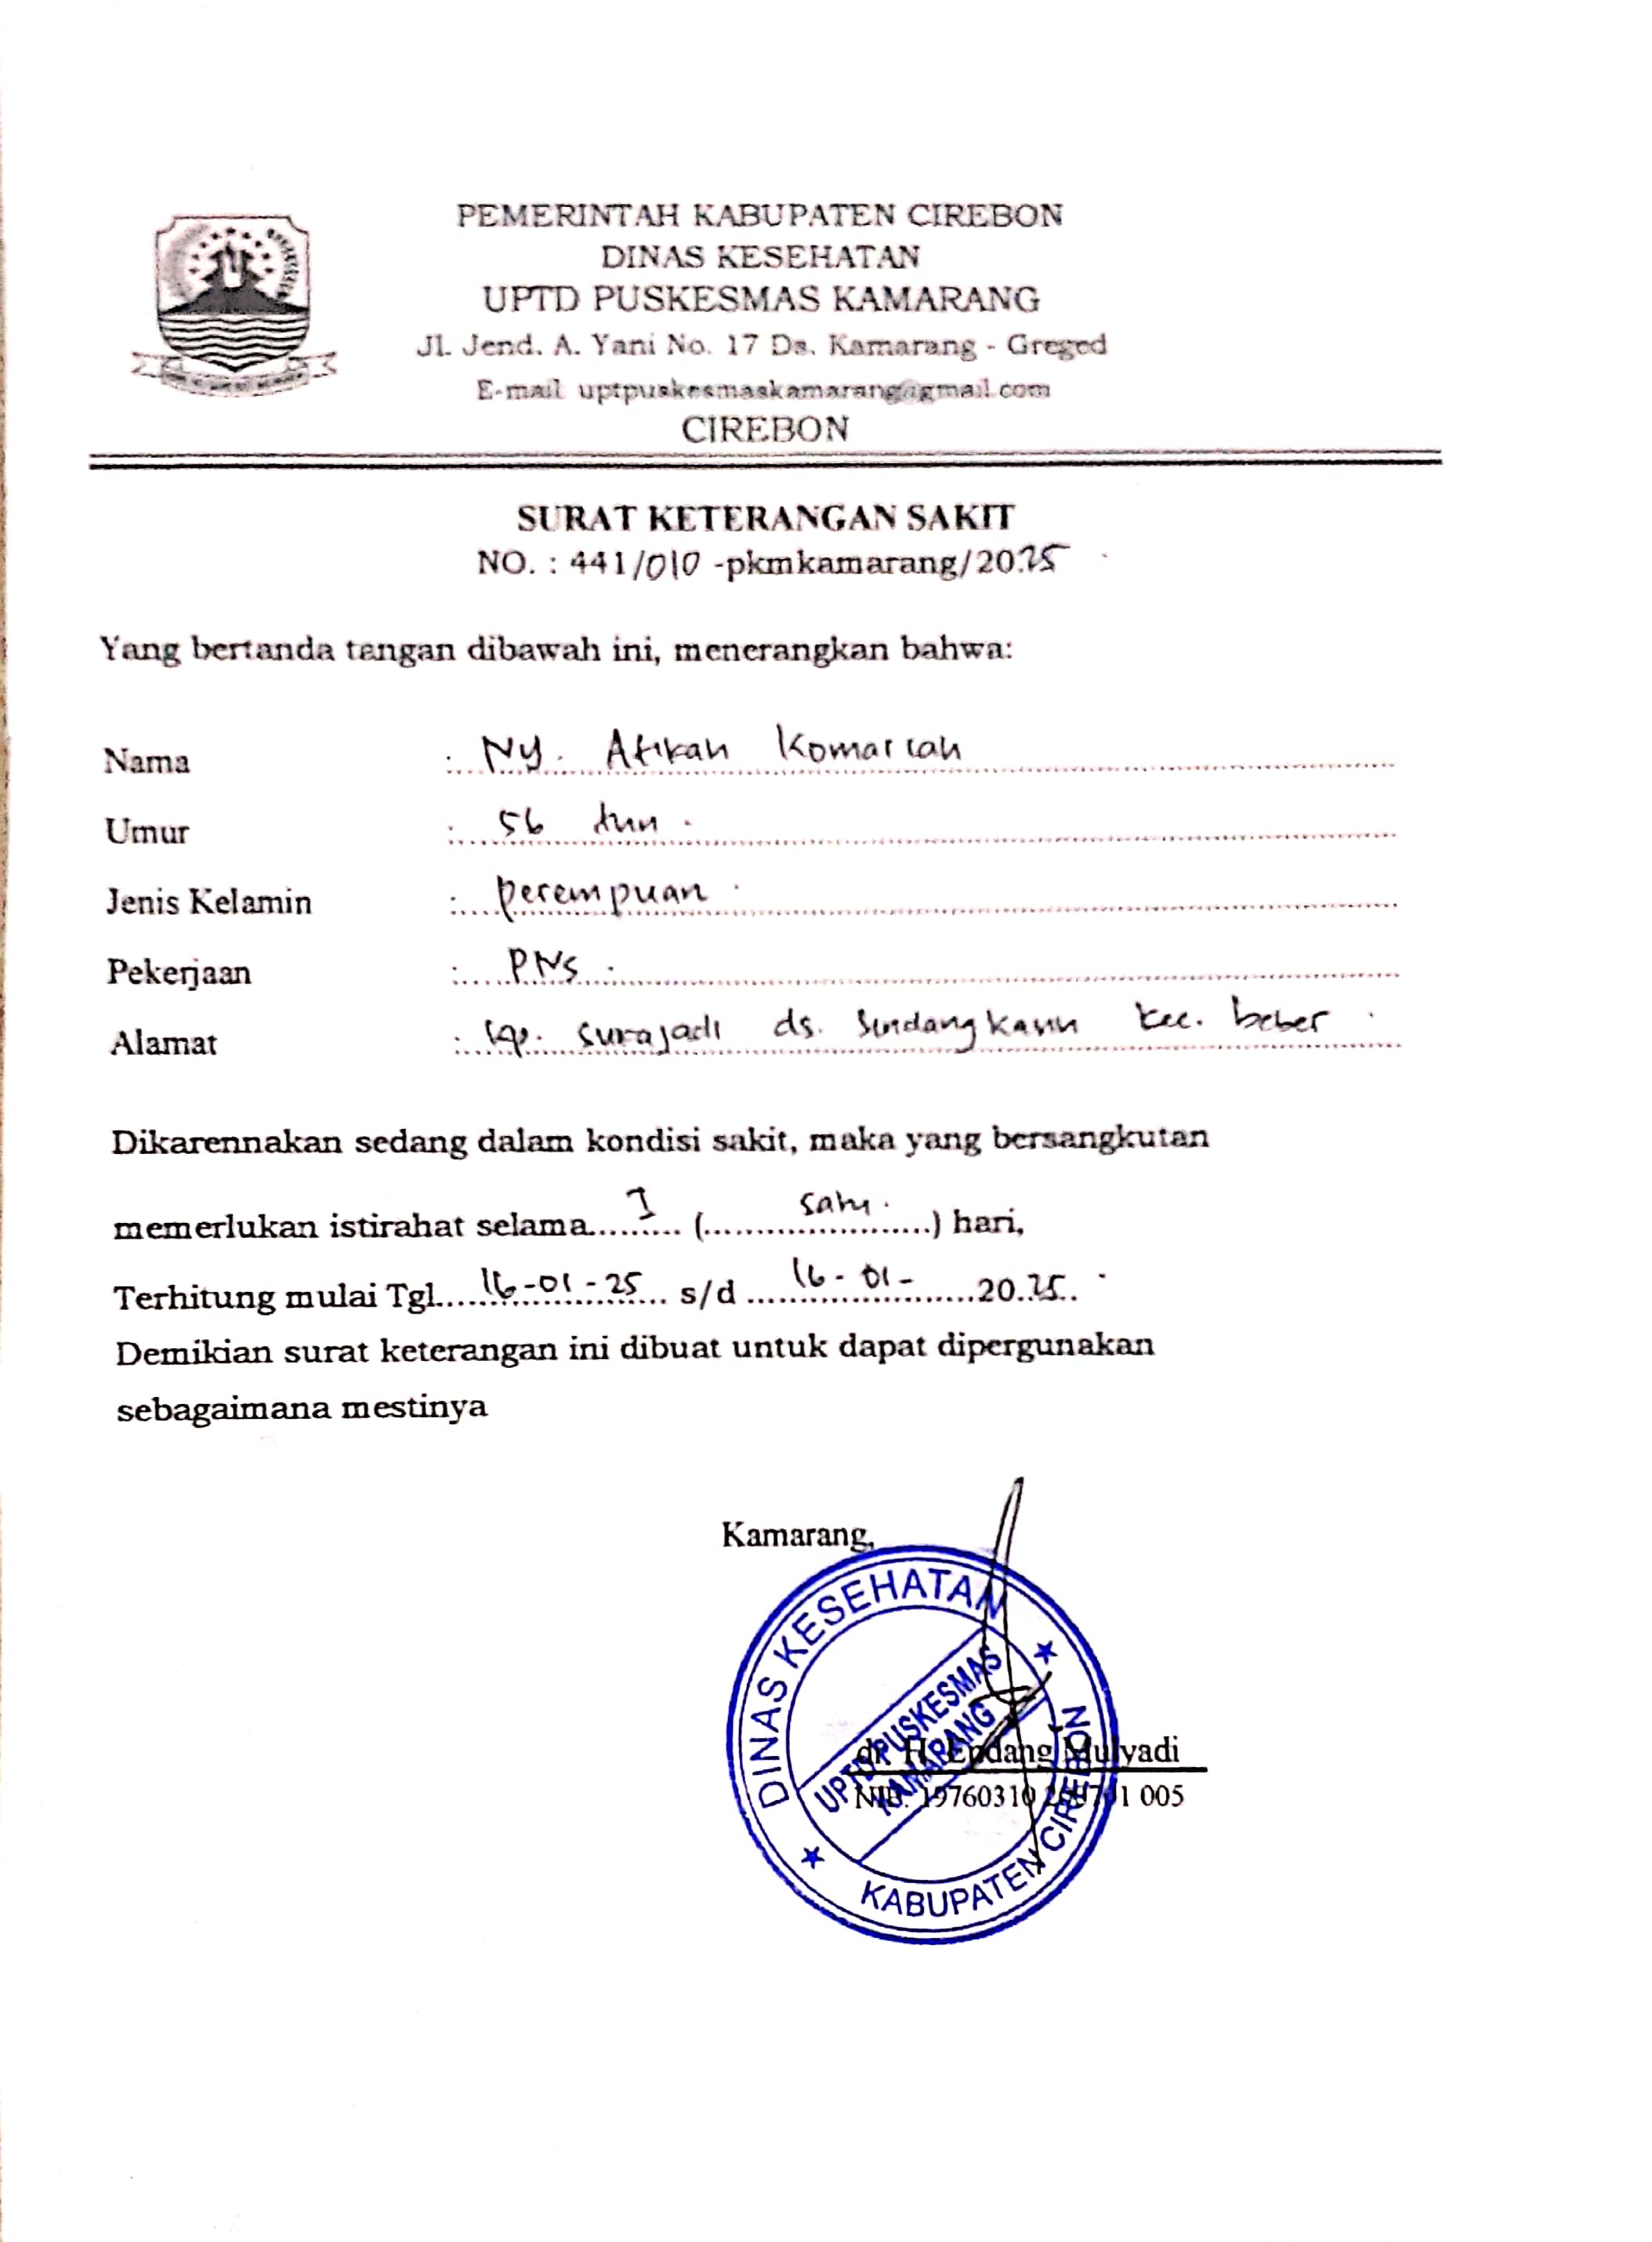 PEMERINTAH KABUPATEN CIREBON
DINAS KESEHATAN
UPTD PUSKESMAS KAMARANG
Jl. Jend. A. Yani No. 17 Ds. Kamarang - Greged
E-mail uptpuskesmaskamarang@gmail.com
CIREBON
SURAT KETERANGAN SAKIT
NO. : 441/010 -pkmkamarang/2025
Yang bertanda tangan dibawah ini, menerangkan bahwa:
Nama : Ny. Atikah Komariah
Umur : 56 thn.
Jenis Kelamin : perempuan.
Pekerjaan : PNS.
Alamat : kp. surajadi ds. Sindangkasih kec. beber.
Dikarennakan sedang dalam kondisi sakit, maka yang bersangkutan
memerlukan istirahat selama 1 (satu.) hari,
Terhitung mulai Tgl. 16-01-25 s/d 16-01- 2025.
Demikian surat keterangan ini dibuat untuk dapat dipergunakan
sebagaimana mestinya
Kamarang,
DINAS KESEHATAN
UPTD PUSKESMAS
KAMARANG
KABUPATEN CIREBON
dr. H. Endang Mulyadi
NIP. 19760310 200701 005